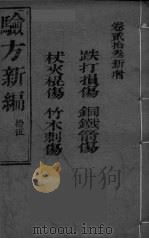 卷貳拾叁新增
跌打損傷 銅鐵箭傷
杖夾棍傷 竹木刺傷
驗方新編